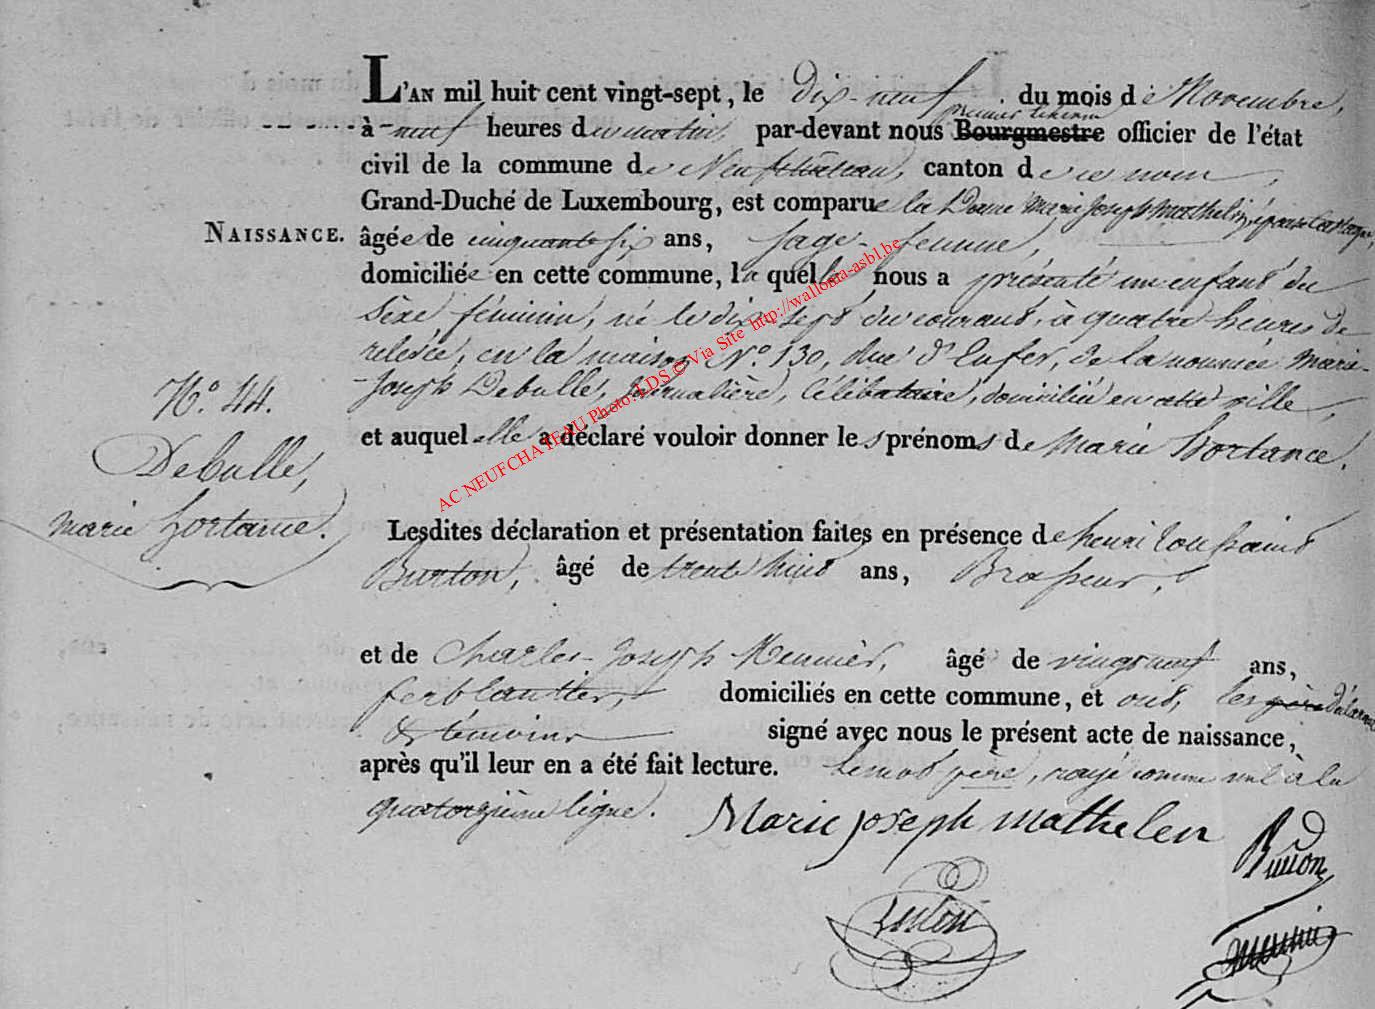 L'AN mil huit cent vingt-sept, le dix-neuf du mois de Novembre,
premier échevin
à neuf heures du matin, par-devant nous Bourgmestre officier de l'état
civil de la commune de Neufchateau, canton de ce nom,
Grand-Duché de Luxembourg, est comparue la Dame Marie Joseph Mathelin, épouse
NAISSANCE. âgée de cinquante six ans, sage-femme,
domiciliée en cette commune, la quelle nous a présenté un enfant du
Sexe féminin, né le dix sept du courant, à quatre heures de
relevée, en la maison N.° 130, rue d'Enfer, de la nommée Marie-
N.° 44. Joseph Debulle, Journalière, célibataire, domiciliée en cette ville,
et auquel elle a déclaré vouloir donner les prénoms de Marie Hortance.
Debulle,
marie hortance.
Lesdites déclaration et présentation faites en présence de henri toussaint
Burton, âgé de trente huit ans, Brasseur,
et de Charles-Joseph Meunier, âgé de vingt neuf ans,
ferblantier, domiciliés en cette commune, et ont, les père
& témoins signé avec nous le présent acte de naissance,
après qu'il leur en a été fait lecture. Le mot père, rayé comme nul à la
quatorzième ligne.
Marie joseph mathelen
AC NEUFCHATEAU Photo: LDS © Via Site http://wallonia-asbl.be